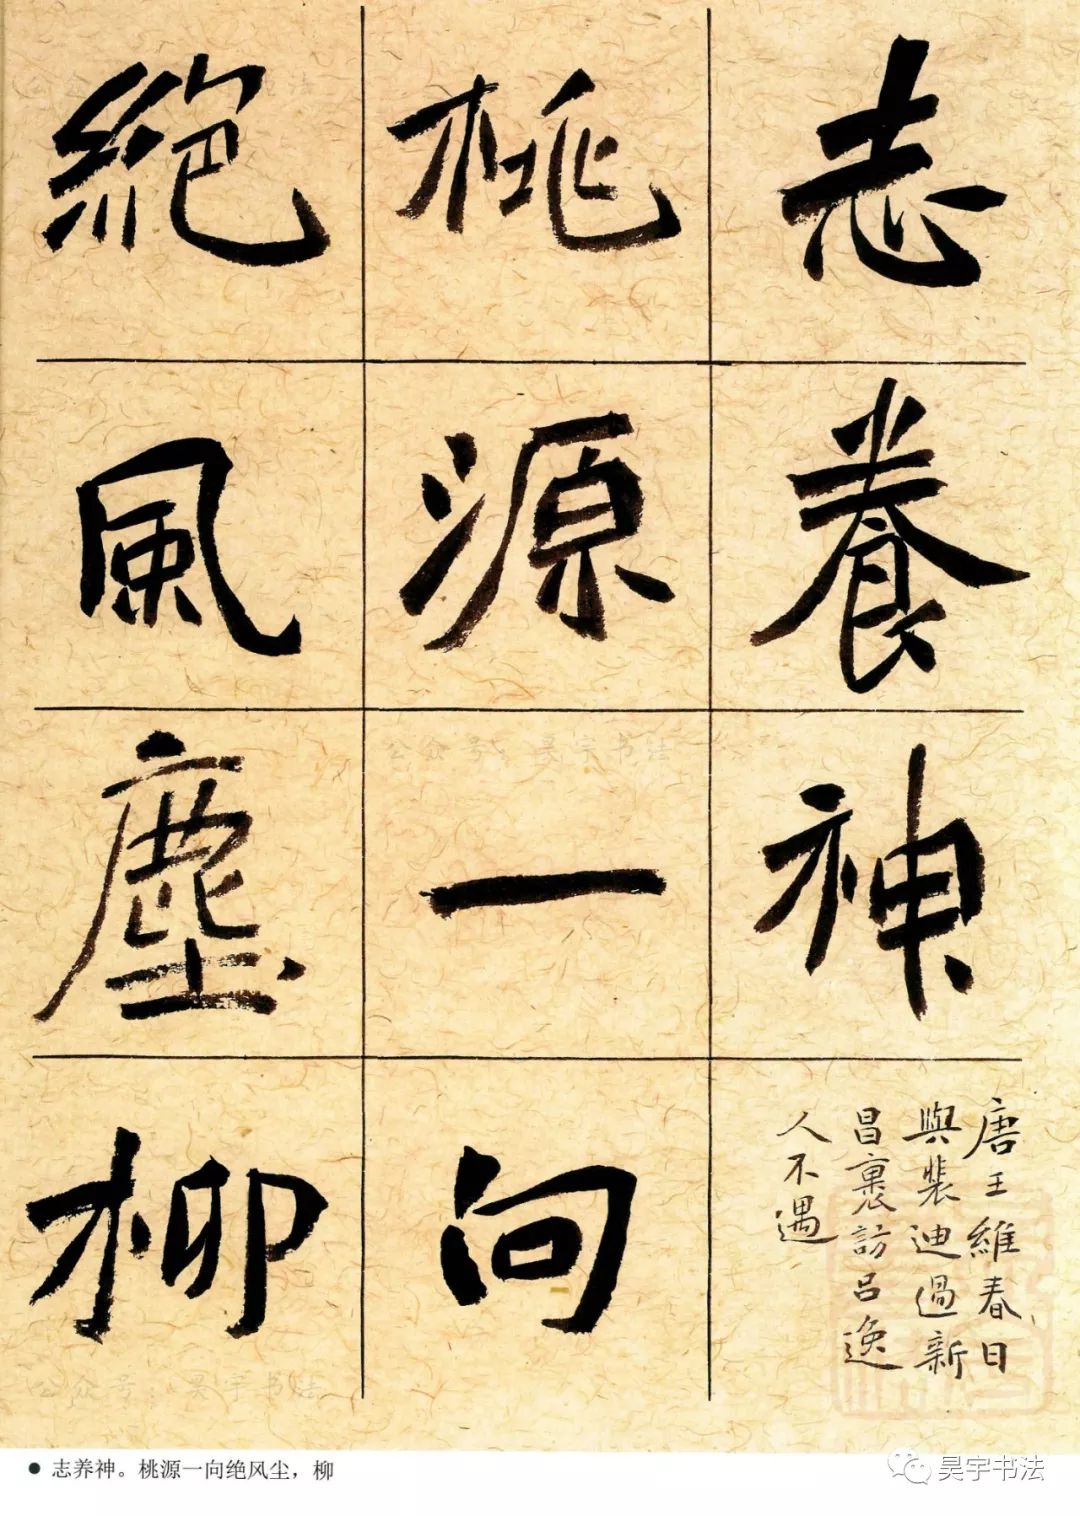 志養神
唐王維春日
與裴迪過新
昌裏訪呂逸
人不遇
桃源一向
絕風塵柳
公众号：昊宇书法
公众号：昊宇书法
● 志养神。桃源一向绝风尘，柳
昊宇书法